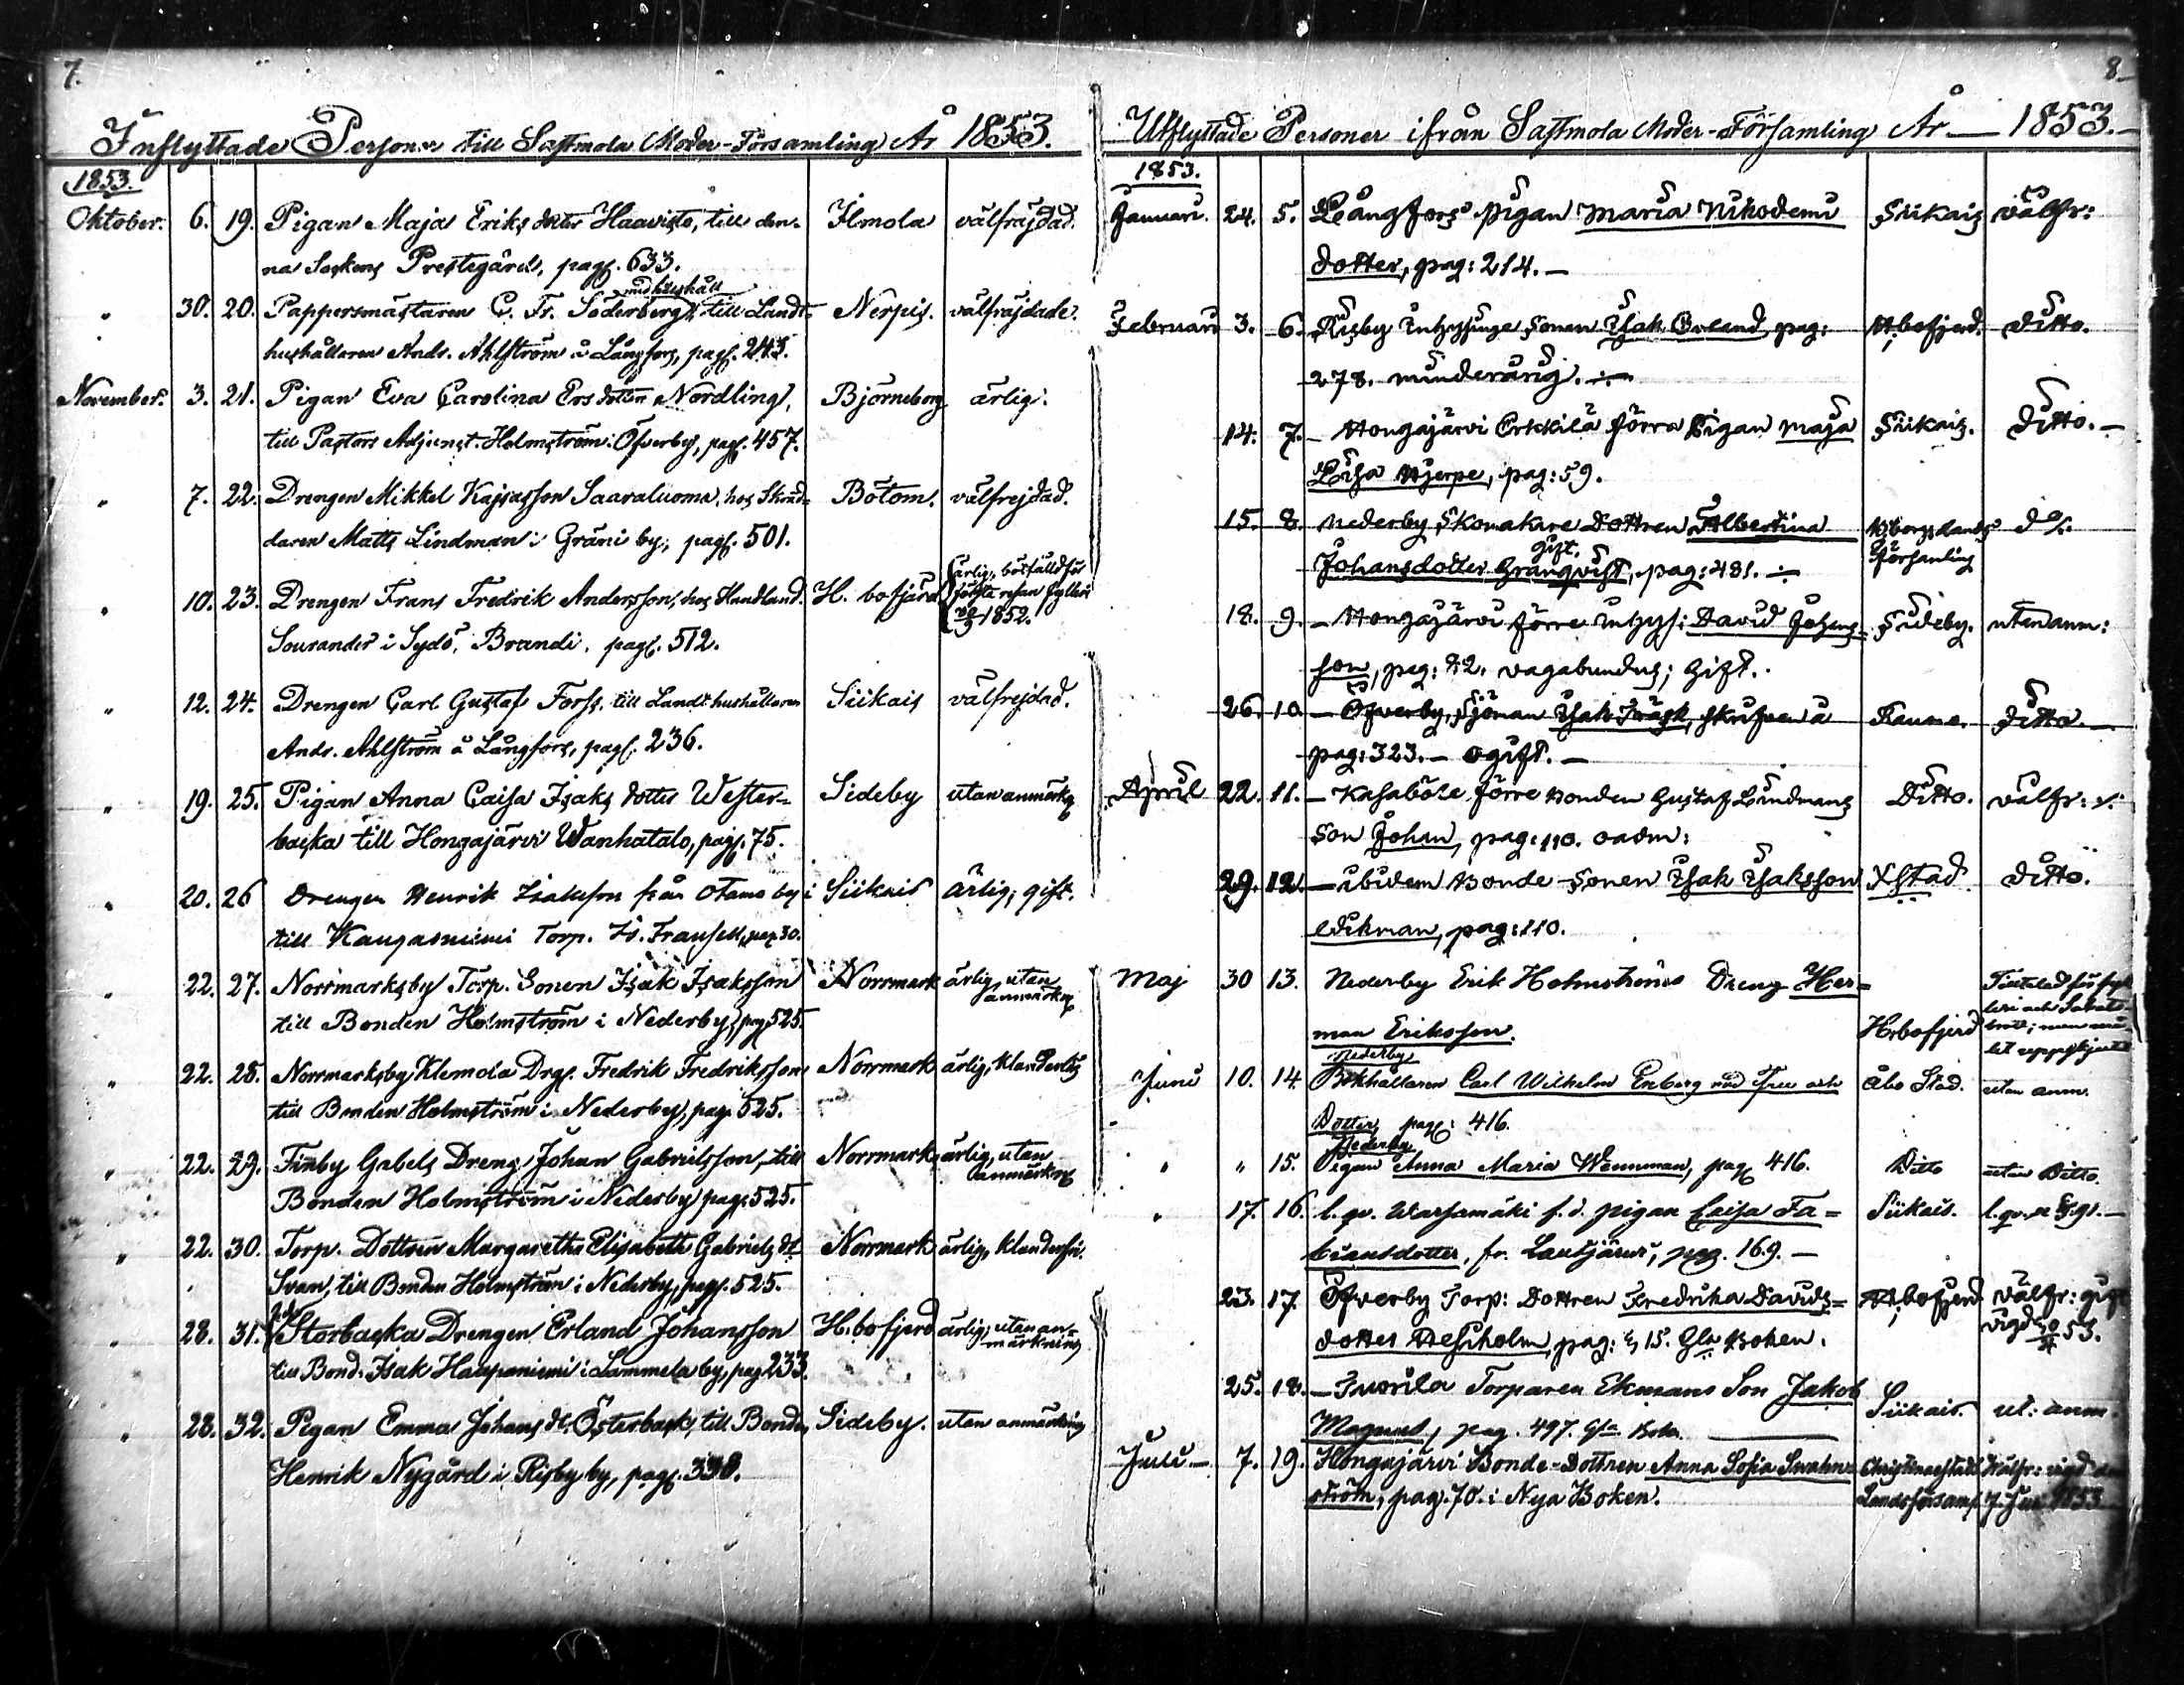 7.
Inflyttade Personer till Sastmola Moder-Församling År 1853.
1853.
Oktober. 6. 19. Pigan Maja Eriks dotter Haavisto, till den- Ilmola välfräjdad.
na Sockens Prestegård, pag. 633.
med hushåll
" 30. 20. Pappersmästaren C. Fr. Söderberg, till Landt- Nerpis. välfräjdade.
hushållaren Ands. Ahlström å Långfors, pag. 243.
November. 3. 21. Pigan Eva Carolina Ersdotter Nordling, Björneborg ärlig.
till Pastors Adjunct. Holmström: Öfverby, pag. 457.
" 7. 22. Drengen Mikkel Kajsasson Saaraluoma, hos Skräd- Bötom. välfrejdad.
daren Matts Lindman i Gräni by, pag. 501.
" 10. 23. Drengen Frans Fredrik Andersson, hos Handland. H. bofjärd ärlig, bötfälld för
första resan fylleri
1852.
Sourander i Sydö, Brandi, pag. 512.
" 12. 24. Drengen Carl Gustaf Forss, till Landthushållaren Siikais välfrejdad.
Ands. Ahlström å Långfors, pag. 236.
" 19. 25. Pigan Anna Caisa Isaks dotter Wester- Sideby utan anmärkg
backa till Hongajärvi Wanhatalo, pag. 75.
" 20. 26 Drengen Henrik Isaksson från Otamo by i Siikais ärlig, gift.
till Kangasniemi Torp. Is. Fransell, pag 30.
" 22. 27. Norrmarksby Torp. Sonen Isak Isaksson Norrmark ärlig, utan
anmärkng
till Bonden Holmström i Nederby, pag 525.
" 22. 28. Norrmarksby Klemola Drg. Fredrik Fredriksson Norrmark ärlig, klanderlös
till Bonden Holmström i Nederby, pag. 525.
" 22. 29. Finby Gabels Dreng Johan Gabrielsson, till Norrmark ärlig, utan
anmärkng
Bonden Holmström i Nederby pag. 525.
" 22. 30. Torp. Dottren Margaretha Elisabeth Gabriels dt Norrmark ärlig, klanderfri.
Svan, till Bonden Holmström i Nederby, pag. 525.
" 28. 31. Storbacka Drengen Erland Johansson H.bofjerd ärlig, utan an-
märkning
till Bond. Isak Haapaniemi i Lammela by, pag 233.
" 28. 32. Pigan Emma Johans dt. Österback, till Bonden Sideby. utan anmärkning
Henrik Nygård i Risby by, pag. 338.
8
Utflyttade Personer ifrån Sastmola Moder-Församling År 1853.
1853.
Januari. 24. 5. Leångfors pigan Maria Nikodemi Siikais välfr:
dotter, pag: 214.
Februari 3. 6. Risby Inhysinge Sonen Isak Erland pag: H.bofjerd. Ditto.
278. minderårig.
14. 7. Hongajärvi Erkkilä förra Pigan Maja Siikais. Ditto.
Lisa Hjerpe, pag: 59.
15. 8. Nederby Skomakare Dottren Albertina B.borgs lands do.
församling
gift.
Johansdotter Granqvist, pag: 481.
18. 9. Hongajärvi förre Inhys: David Johans- Sideby. utan anm:
son, pag: 82. vagabundus; Gift.
26. 10. Öfverby, Sjöman Isak Träsk, skrifven å Raumo. Ditto.
pag: 323. ogift.
April 22. 11. Kasaböle förre Bonden Gustaf Lindmans Ditto. välfr:
Son Johan, pag: 110. oadm:
29. 12. ibidem Bonde-Sonen Isak Isaksson XStad Ditto.
Wikman, pag: 110.
Maj 30 13. Nederby Erik Holmströms Dreng Her-
man Eriksson. H:bofjerd Tilltalad för fyl-
leri och Sabats-
brott; men må-
let uppskjutet
Nederby
Juni 10. 14. Bokhållaren Carl Wilhelm Enberg med Fru och Åbo Stad. utan anm.
Dotter, pag: 416.
Nederby
" " 15. Pigan Anna Maria Wennman, pag 416. Ditto utan Ditto.
" 17. 16. Warsamäki f. d. pigan Caisa Fa- Siikais.
biansdotter, fr. Lautjärvi, pag. 169.
23. 17. Öfverby Torp: Dottren Fredrika Davids- H:bofjerd välfr: gift
vigd 53.
dotter Westholm, pag: 515. Gla Boken.
25. 18. Inorila Torparen Ekmans Son Jakob Siikais. ut: anm.
Magnus, pag. 497. Gla Boken.
Juli 7. 19. Hongajärvi Bonde-Dottren Anna Sofia Swahn- Christinaestads Välfr: vigd
ström, pag. 70. i Nya Boken. Landsförsaml. 7. Jul. 1853